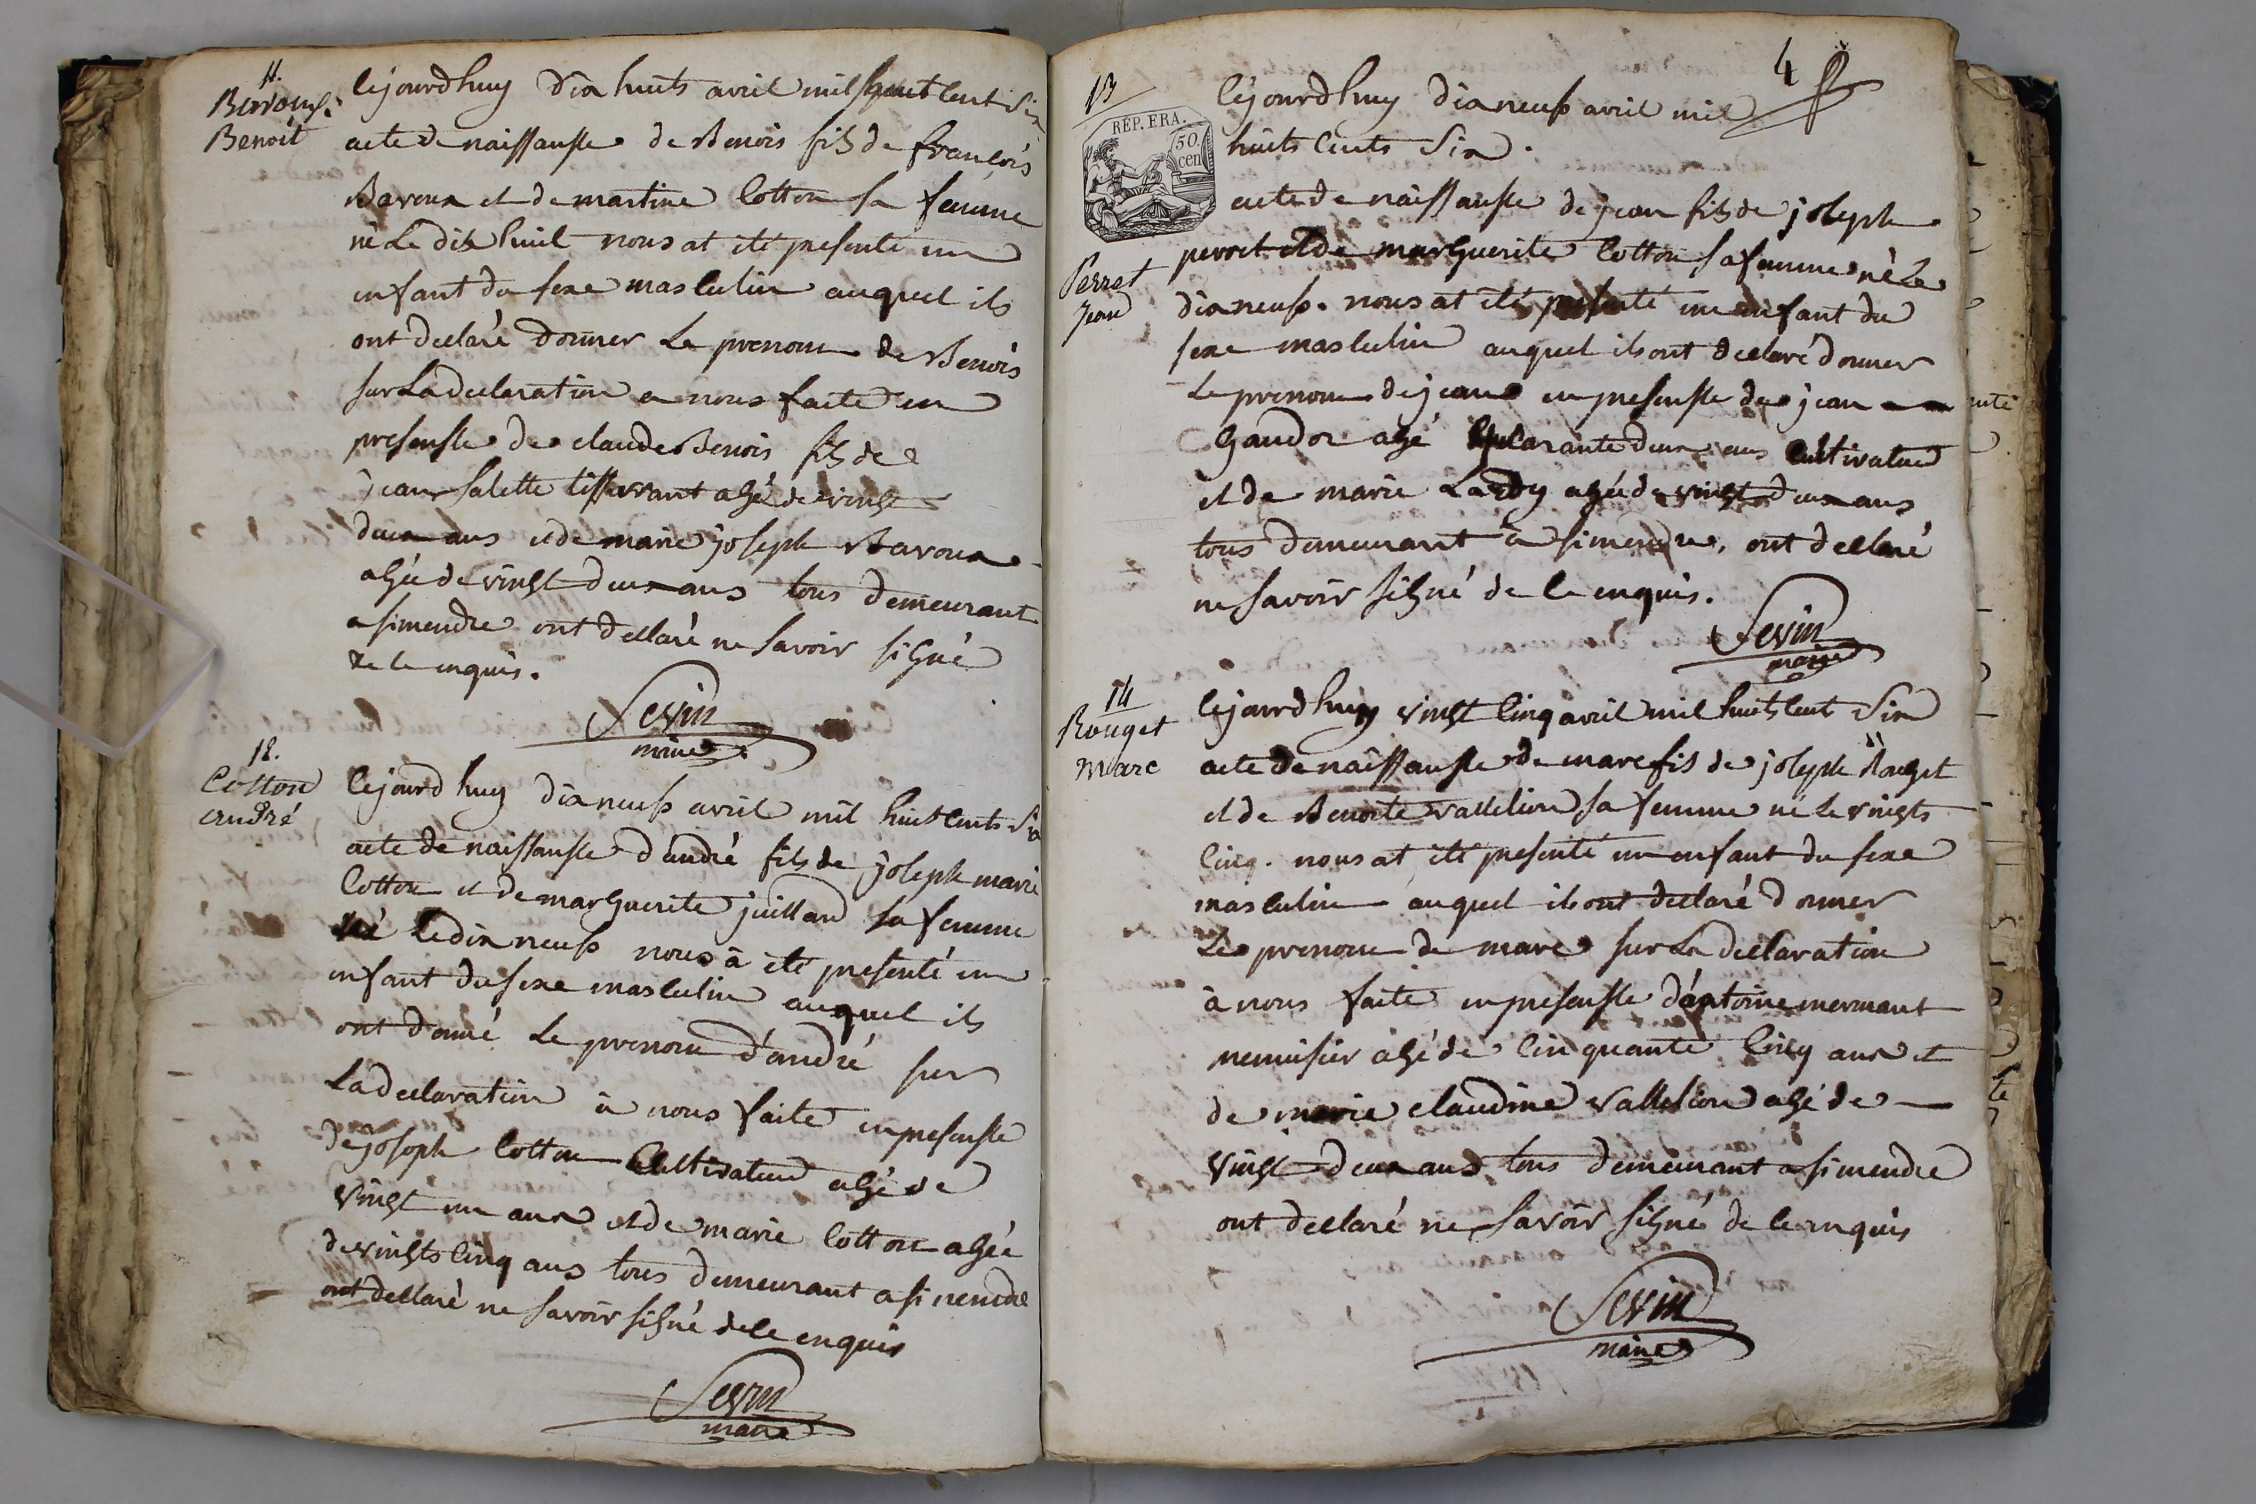 11.
Bavoux
Benoit
Cejourdhuy dix huits avril mil huit cent six
acte de naissansse de Benois fils de francois
Bavoux et de martine Cotton sa femme
né le dix huit nous at été presenté un
enfant du sexe masculin auquel ils
ont declaré donner le prenom de Benois
sur la declaration a nous faite en
presensse de claude Benois fils de
jean salette tisserant agé de vingt
deux ans et de marie joseph Bavoux
agée de vingt deux ans tous demeurant
a simendre ont declaré ne savoir signé
de ce enquis.
Sevin
maire
12.
Cotton
andré
Cejourdhuy dix neuf avril mil huit cents six
acte de naissansse d'andré fils de joseph marie
Cotton et de marguerite juillard sa femme
né le dix neuf nous à été presenté un
enfant du sexe masculin auquel ils
ont donné le prenom d'andré sur
la declaration à nous faite en presensse
de joseph Cotton Cultivateur agé de
vingt un ans et de marie Cotton agée
de vingts cinq ans tous demeurant a simendre
ont declaré ne savoir signé de ce enquis
Sevin
maire
4
13
REP. FRA.
50
cen
Perret
jean
Cejourdhuy dix neuf avril mil
huits Cents six.
acte de naissansse de jean fils de joseph
perret et de marguerite Cotton sa femme né le
dix neuf. nous at été presenté un enfant du
sexe masculin auquel ils ont declaré donner
le prenom de jean en presensse de jean
Gaudoz agé quarante deux ans Cultivateur
et de marie Lardy agée de vingt deux ans
tous demeurant à simendre, ont declaré
ne savoir signé de ce enquis.
Sevin
maire
14
Rouget
Marc
Cejourdhuy vingt cinq avril mil huits cent six
acte de naissansse de marc fils de joseph Rouget
et de Benoite vallelion sa femme né le vingts
Cinq. nous at été presenté un enfant du sexe
masculin auquel ils ont declaré donner
le prenom de marc sur la declaration
à nous faite en presensse d'antoine mermant
menuisier agé de Cinquante Cinq ans et
de marie claudine vallelion agé de
vingt deux ans tous demeurant a simendre
ont declaré ne savoir signé de ce enquis
Sevin
maire